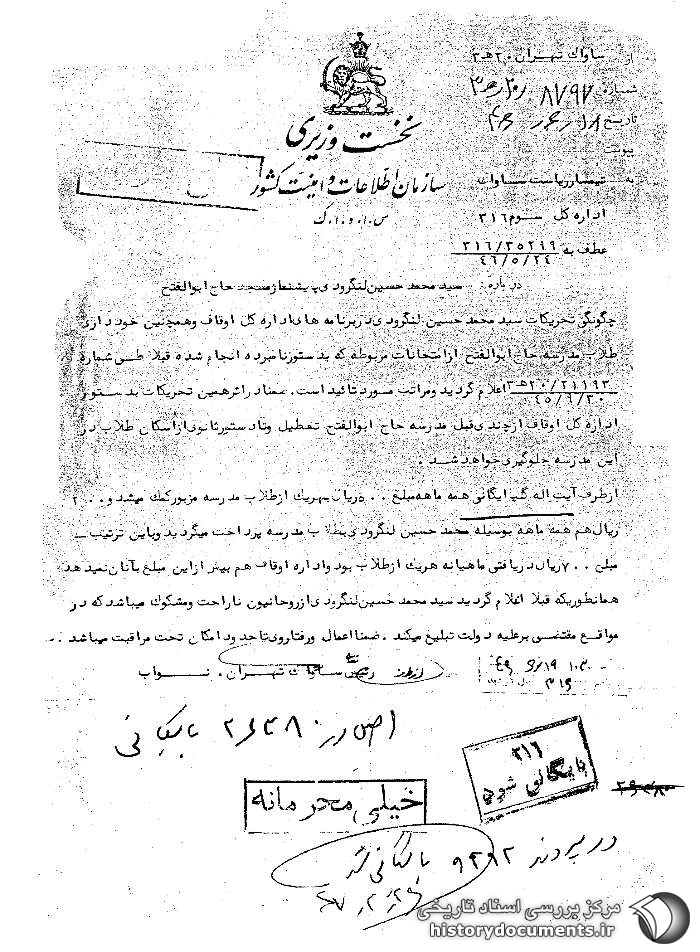 از ساواك تهران ۲۰ هـ ۳
شماره ۸۷۹۷ / ۲۰ هـ ۳
تاریخ
پیوست
نخست وزیری
سازمان اطلاعات و امنیت کشور
س.ا.و.ا.ك
به تیمسار ریاست ساواك
اداره کل سوم ۳۱۶
عطف به ۳۱۶/۳۵۲۹۹
۴۶/۵/۲۴
درباره : سید محمد حسین لنگرودی پیشنماز مسجد حاج ابوالفتح
چگونگی تحریکات سید محمد حسین لنگرودی در برنامه های اداره کل اوقاف وهمچنین خود داری
طلاب مدرسه حاج ابوالفتح از امتحانات مربوطه که بدستور نامبرده انجام شده قبلا طی شماره
۲۱۱۹۳/۲۰ هـ ۳ اعلام گردید ومراتب مورد تائید است . ضمنا در اثر همین تحریکات بدستور
۴۵/۹/۳۰
اداره کل اوقاف از چندی قبل مدرسه حاج ابوالفتح تعطیل وتا دستور ثانوی از اسکان طلاب در
این مدرسه جلوگیری خواهد شد .
از طرف آیت اله گلپایگانی همه ماهه مبلغ ۵۰۰ ریال بهریک از طلاب مدرسه مزبور کمك میشد و ۲۰۰
ریال هم همه ماهه بوسیله محمد حسین لنگرودی بطلاب مدرسه پرداخت میگردید وباین ترتیب
مبلغ ۷۰۰ ریال دریافتی ماهیانه هریك از طلاب بود واداره اوقاف هم بیشتر از این مبلغ بآنان نمیدهد
همانطوریکه قبلا اعلام گردید سید محمد حسین لنگرودی از روحانیون ناراحت ومشکوك میباشد که در
مواقع مقتضی برعلیه دولت تبلیغ میکند . ضمنا اعمال ورفتار وی تا حدود امکان تحت مراقبت میباشد .
از طرف رئیس ساواك تهران . نواب
اصل در ۲۶۳۸۰ بایگانی
۳۱۶
بایگانی شود
خیلی محرمانه
در پرونده ۹۲۹۲ بایگانی شد
مرکز بررسی اسناد تاریخی
historydocuments.ir